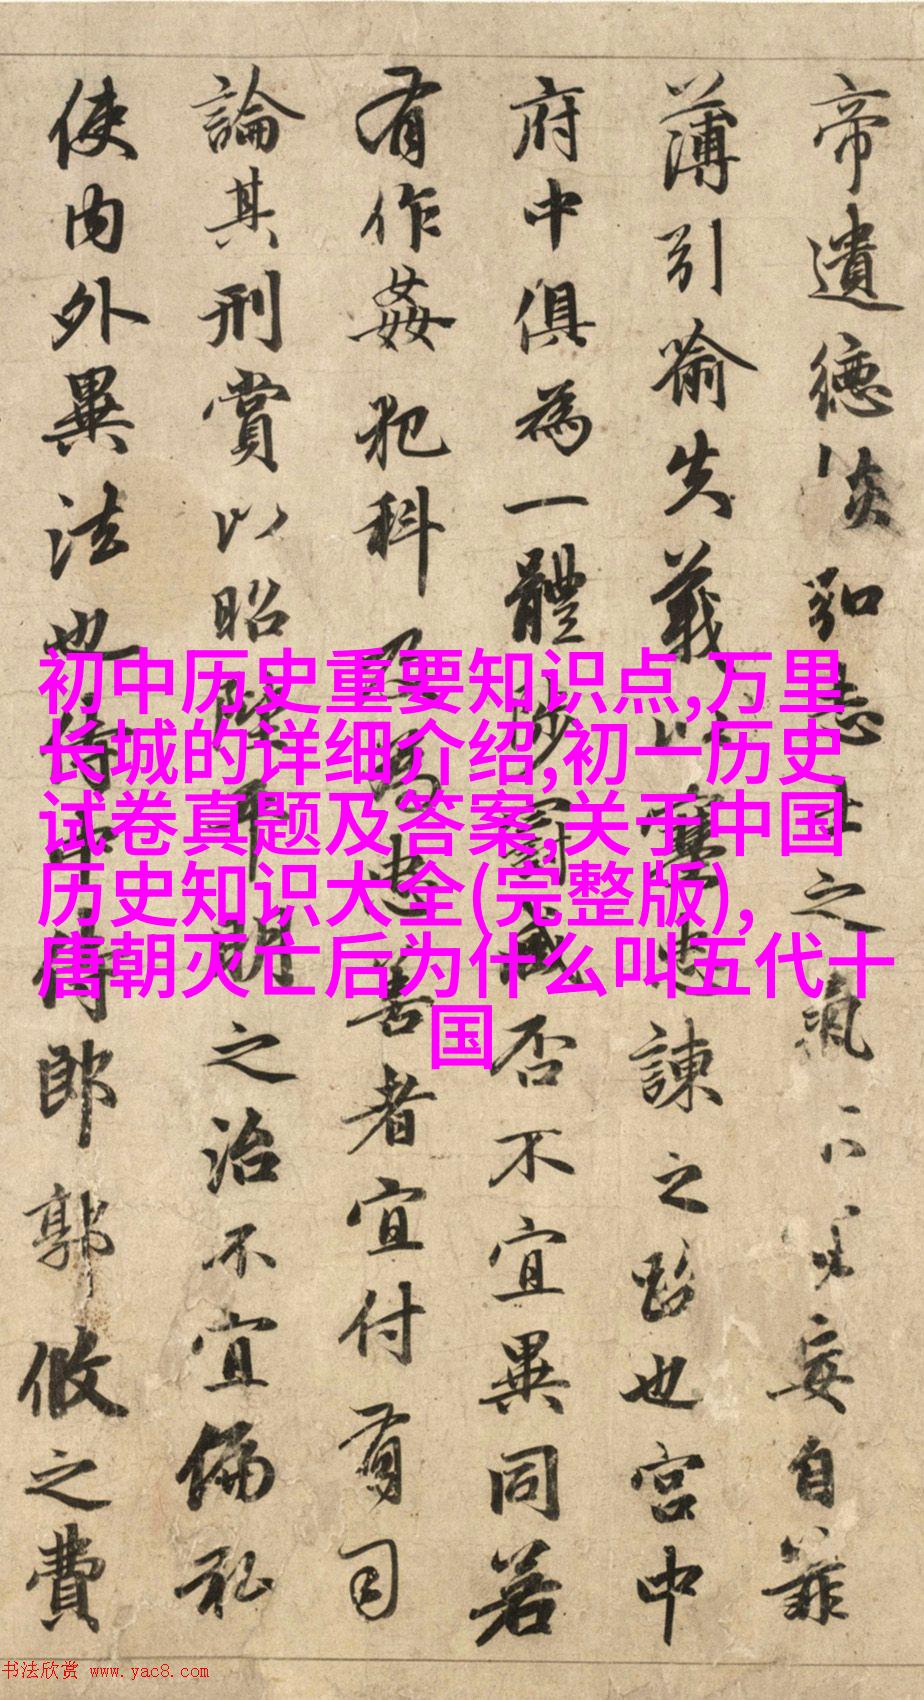 帝遺德恢弘志士之氣妄自菲
薄引喻失義以塞忠諫之路也宮中
府中俱為一體陟罰臧否不宜異同若
有作姦犯科及為忠善者宜付有司
論其刑賞以昭陛平明之治不宜偏私
使內外異法也侍中侍郎郭攸之費
初中历史重要知识点,万里
长城的详细介绍,初一历史
试卷真题及答案,关于中国
历史知识大全(完整版),
唐朝灭亡后为什么叫五代十
国
书法欣赏 www.yac8.com